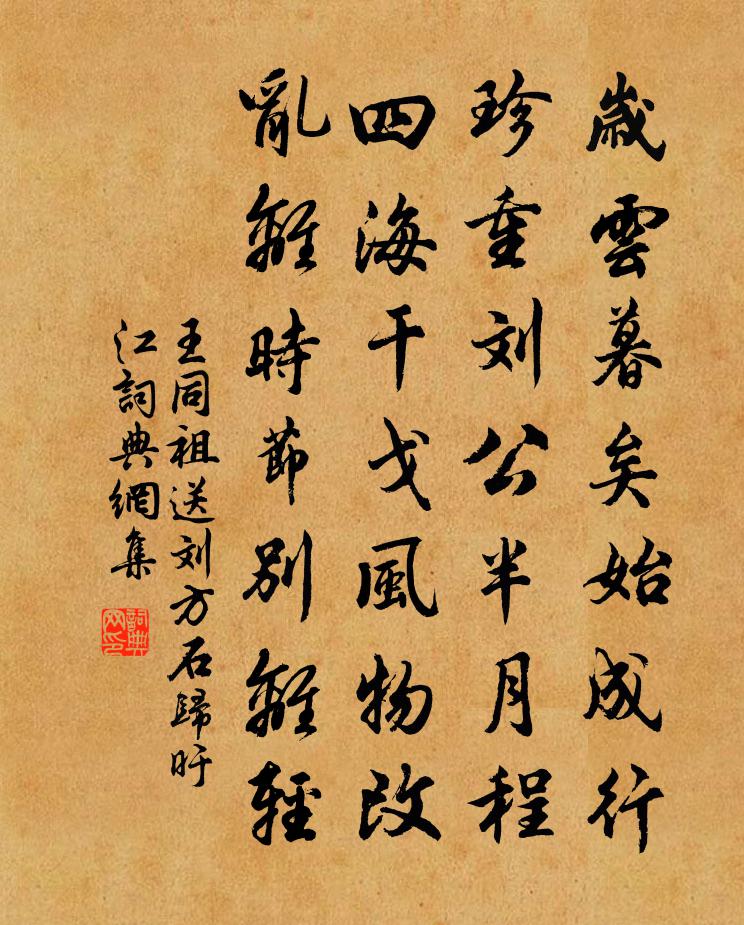 歲雲暮矣始成行
珍重刘公半月程
四海干戈風物改
亂離時節別離輕
王同祖送刘方石歸盱
江詞典網集
詞典网印